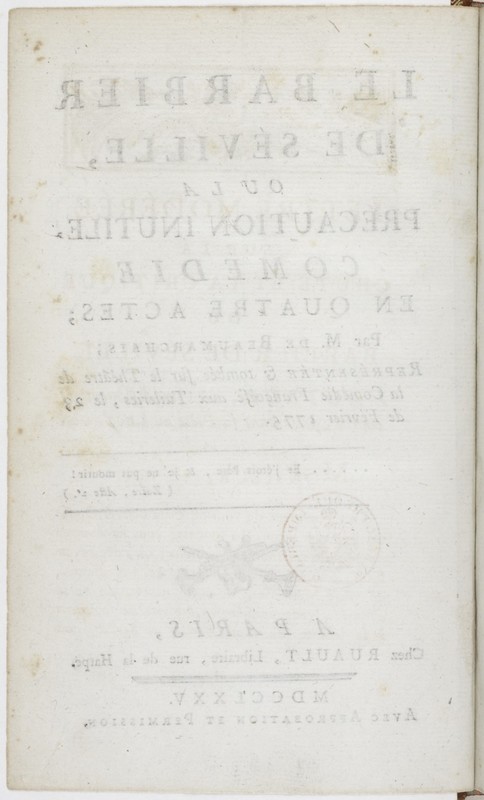 LE BARBIER
DE SÉVILLE,
OU LA
PRÉCAUTION INUTILE,
COMÉDIE
EN QUATRE ACTES;
Par M. DE BEAUMARCHAIS;
REPRÉSENTÉE & tombée sur le Théâtre de
la Comédie Françoise aux Tuileries, le 23
de Février 1775.
..... Et j'étois Père, & je ne pus mourir!
(Zaïre, Acte 2.)
A PARIS,
Chez RUAULT, Libraire, rue de la Harpe.
MDCCLXXV.
AVEC APPROBATION ET PERMISSION.